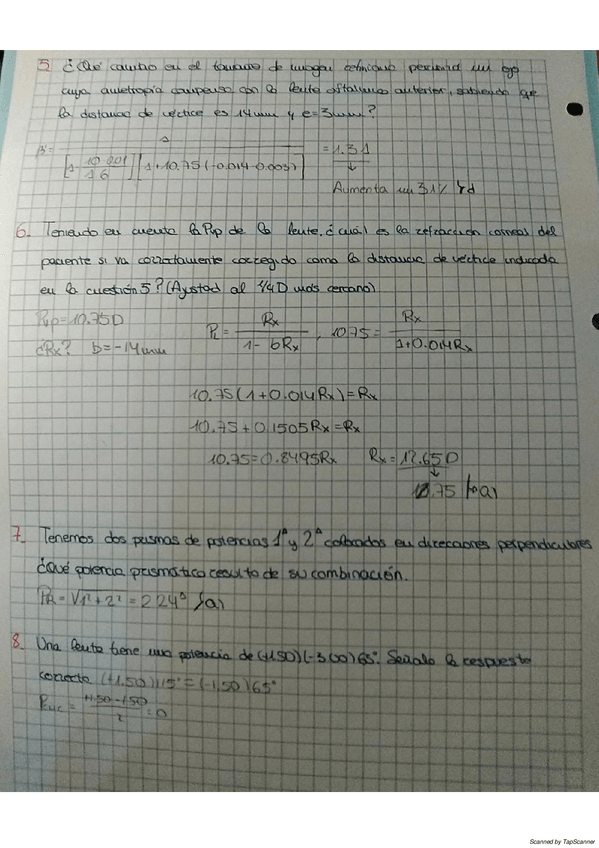 5. ¿Qué cambio en el tamaño de imagen retiniana percibirá un ojo
cuya ametropía compensa con la lente oftálmica anterior, sabiendo que
la distancia de vértice es 14mm y e=3mm?
β = 1 / [1 - 10.801/1.6][1+10.75(-0.014-0.003)] = 1.31
↓
Aumenta un 31%
6. Teniendo en cuenta la Pvp de la lente, ¿cuál es la refracción corneal del
paciente si va correctamente corregido como la distancia de vértice indicada
en la cuestión 5? (Ajustad al 1/4D más cercano)
Pvp=10.75D
¿Rx? b=-14mm
PL = Rx / 1-bRx , 10.75 = Rx / 1+0.014Rx
10.75(1+0.014Rx)=Rx
10.75+0.1505Rx=Rx
10.75=0.8495Rx Rx=12.65D
↓
12.75 [a]
7. Tenemos dos prismas de potencias 1Δ y 2Δ colocados en direcciones perpendiculares
¿Qué potencia prismática resulta de su combinación.
PR=√1²+2²=2.24Δ [a]
8. Una lente tiene una potencia de (+1.50)(-3.00)65°. Señala la respuesta
correcta (+1.50)115°=(-1.50)65°
PMC = +1.50-1.50 / 2 = 0
Scanned by TapScanner